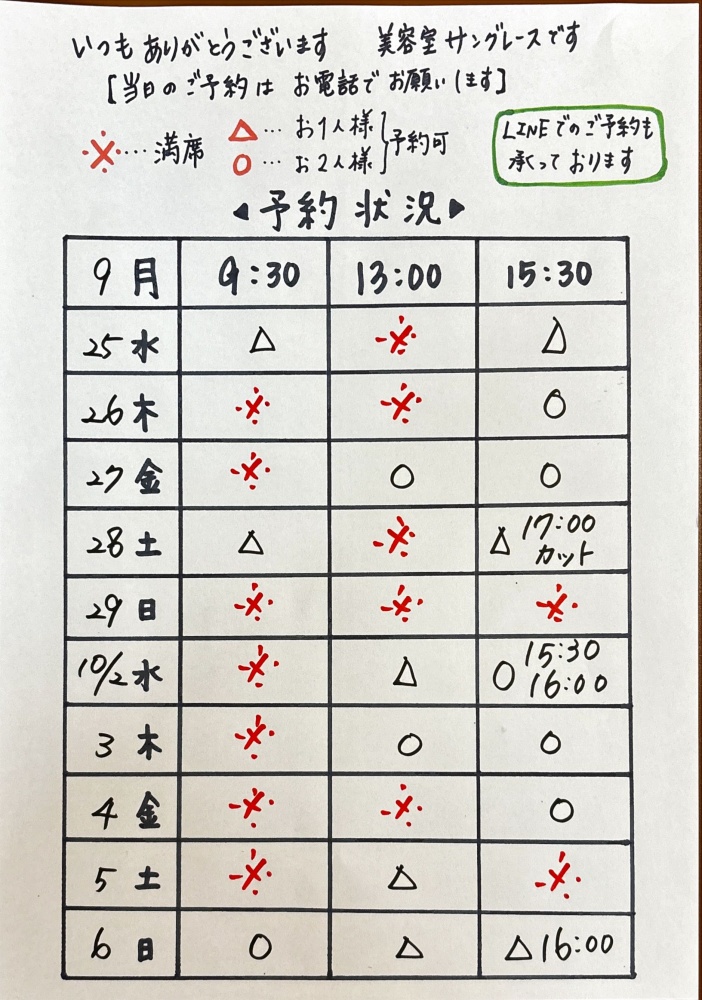 いつもありがとうございます 美容室サングレースです
[当日のご予約は お電話で お願いします]
※…満席
△…お1人様
○…お2人様
予約可
LINEでのご予約も
承っております
◀予約状況▶
9月 9:30 13:00 15:30
25 水 △ ※ △
26 木 ※ ※ ○
27 金 ※ ○ ○
28 土 △ ※ △ 17:00 カット
29 日 ※ ※ ※
10/2 水 ※ △ ○ 15:30 16:00
3 木 ※ ○ ○
4 金 ※ ※ ○
5 土 ※ △ ※
6 日 ○ △ △16:00